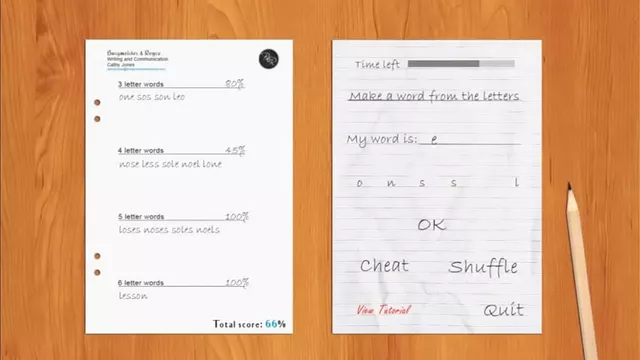 Writing and Communication
Cathy Jones
3 letter words 80%
one sos son leo
4 letter words 45%
nose less sole noel lone
5 letter words 100%
loses noses soles noels
6 letter words 100%
lesson
Total score: 66%
Time left
Make a word from the letters
My word is: e
o n s s l
OK
Cheat Shuffle
View Tutorial Quit